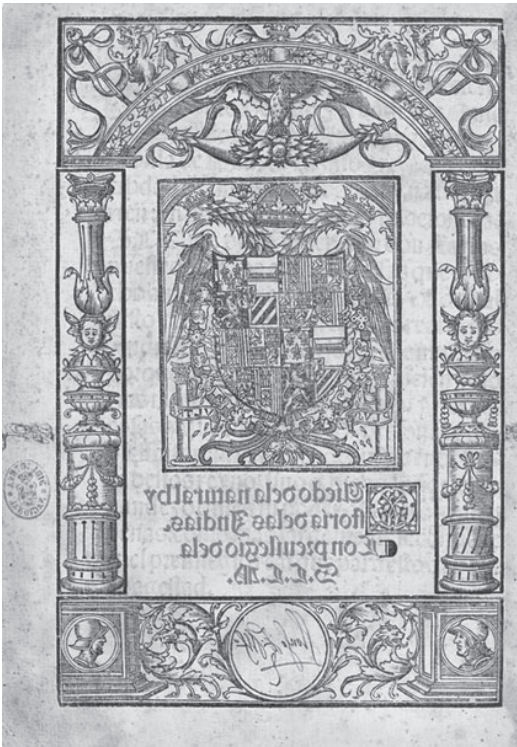 OUiedo dela natural hy
storia delas Indias.
¶ Con preuilegio dela
S.C.C.M.